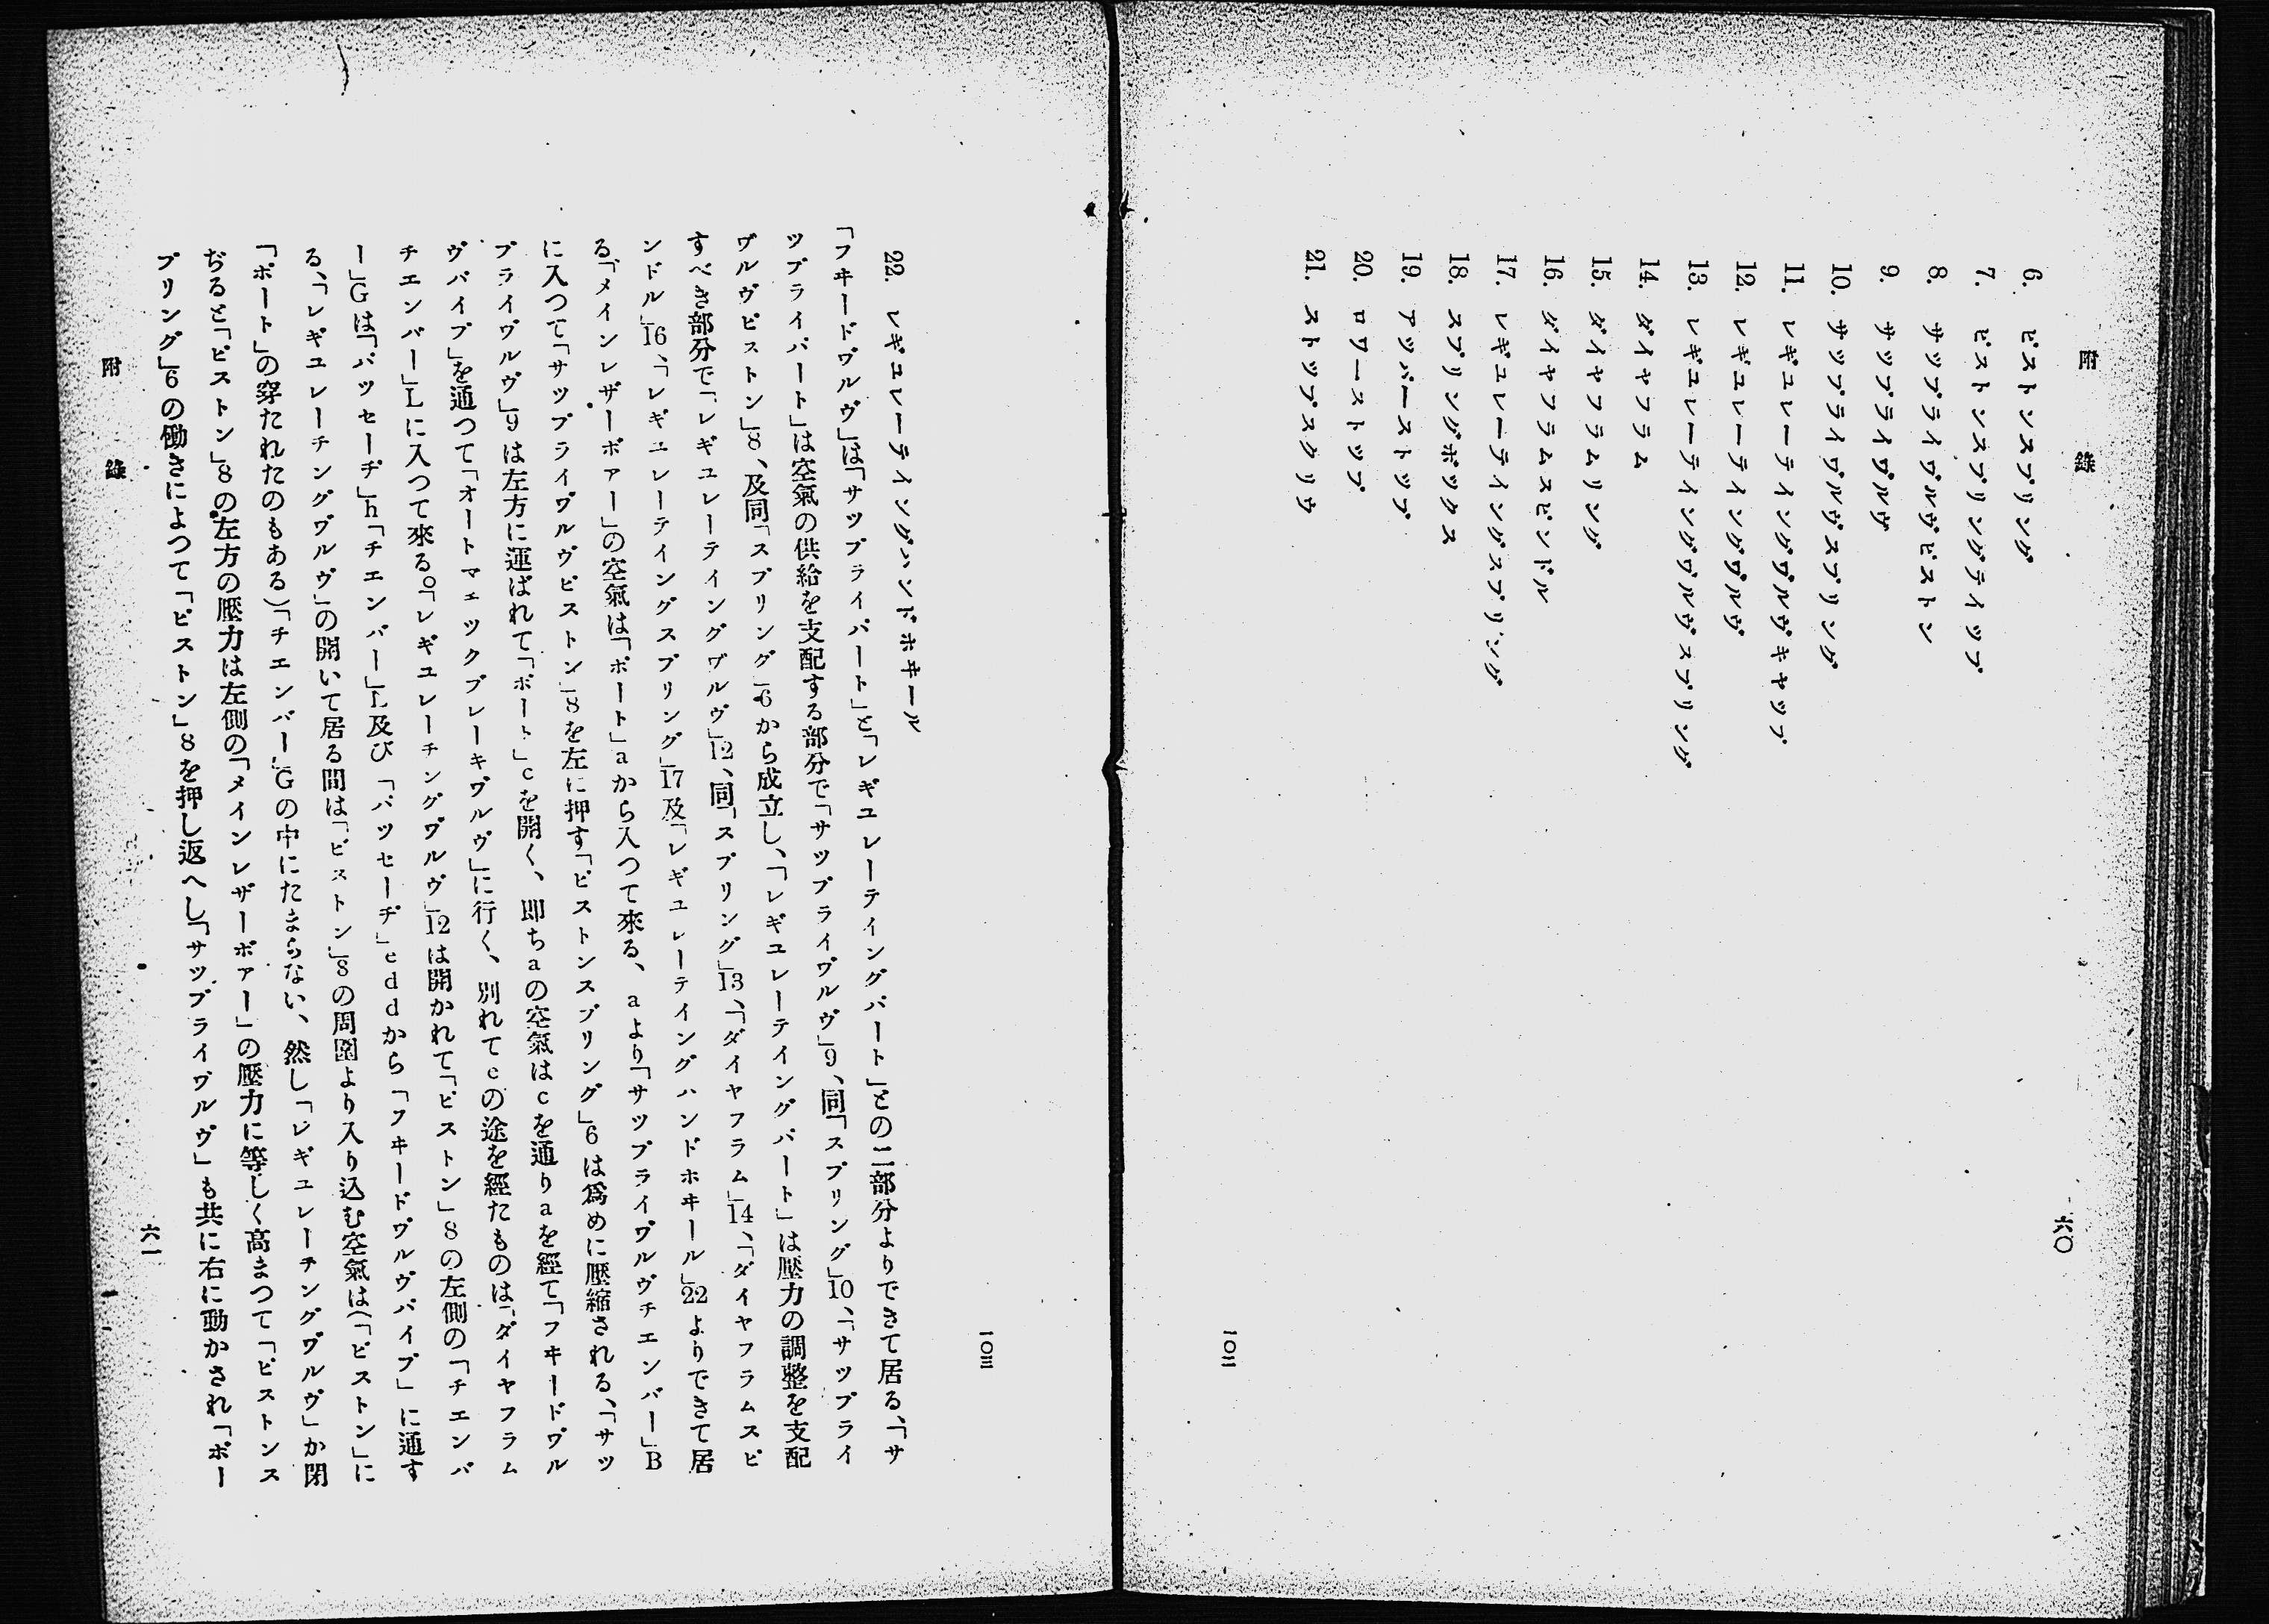 附錄
六〇
6. ピストンスプリング
7. ピストンスプリングティップ
8. サップライヴルヴピストン
9. サップライヴルヴ
10. サップライヴルヴスプリング
11. レギュレーティングヴルヴキャップ
12. レギュレーティングヴルヴ
13. レギュレーティングヴルヴスプリング
14. ダイヤフラム
15. ダイヤフラムリング
16. ダイヤフラムスピンドル
17. レギュレーティングスプリング
18. スプリングボックス
19. アッパーストップ
20. ロワーストップ
21. ストップスクリウ
一〇二
一〇三
22. レギュレーティングハンドホヰール
「フヰードヴルヴ」は「サップライパート」と「レギュレーテイングパート」との二部分よりできて居る、「サ
ップライパート」は空氣の供給を支配する部分で「サップライヴルヴ」9、同「スプリング」10、「サップライ
ヴルヴピストン」8、及同「スプリング」6から成立し、「レギュレーテイングパート」は壓力の調整を支配
すべき部分で「レギュレーテイングヴルヴ」12、同「スプリング」13、「ダイヤフラム」14、「ダイヤフラムスピ
ンドル」16、「レギュレーテイングスプリング」17及「レギュレーテイングハンドホヰール」22よりできて居
る「メインレザーボァー」の空氣は「ポート」aから入つて來る、aより「サップライヴルヴチエンバー」B
に入つて「サップライヴルヴピストン」8を左に押す「ピストンスプリング」6は爲めに壓縮される、「サッ
プライヴルヴ」9は左方に運ばれて「ポート」cを開く、卽ちaの空氣はcを通りaを經て「フヰードヴル
ヴパイプ」を通つて「オートマェックブレーキヴルヴ」に行く、別れてeの途を經たものは「ダイヤフラム
チエンバー」Lに入つて來る。「レギュレーチングヴルヴ」12は開かれて「ピストン」8の左側の「チエンバ
ー」Gは「パッセーヂ」h「チエンバー」L及び「パッセーヂ」eddから「フヰードヴルヴパイプ」に通す
る、「レギュレーチングヴルヴ」の開いて居る間は「ピストン」8の周圍より入り込む空氣は(「ピストン」に
「ポート」の穿たれたのもある)「チエンバー」Gの中にたまらない、然し「レギュレーチングヴルヴ」か閉
ぢると「ピストン」8の左方の壓力は左側の「メインレザーボァー」の壓力に等しく高まつて「ピストンス
プリング」6の働きによつて「ピストン」8を押し返へし「サップライヴルヴ」も共に右に動かされ「ポー
附錄
六一